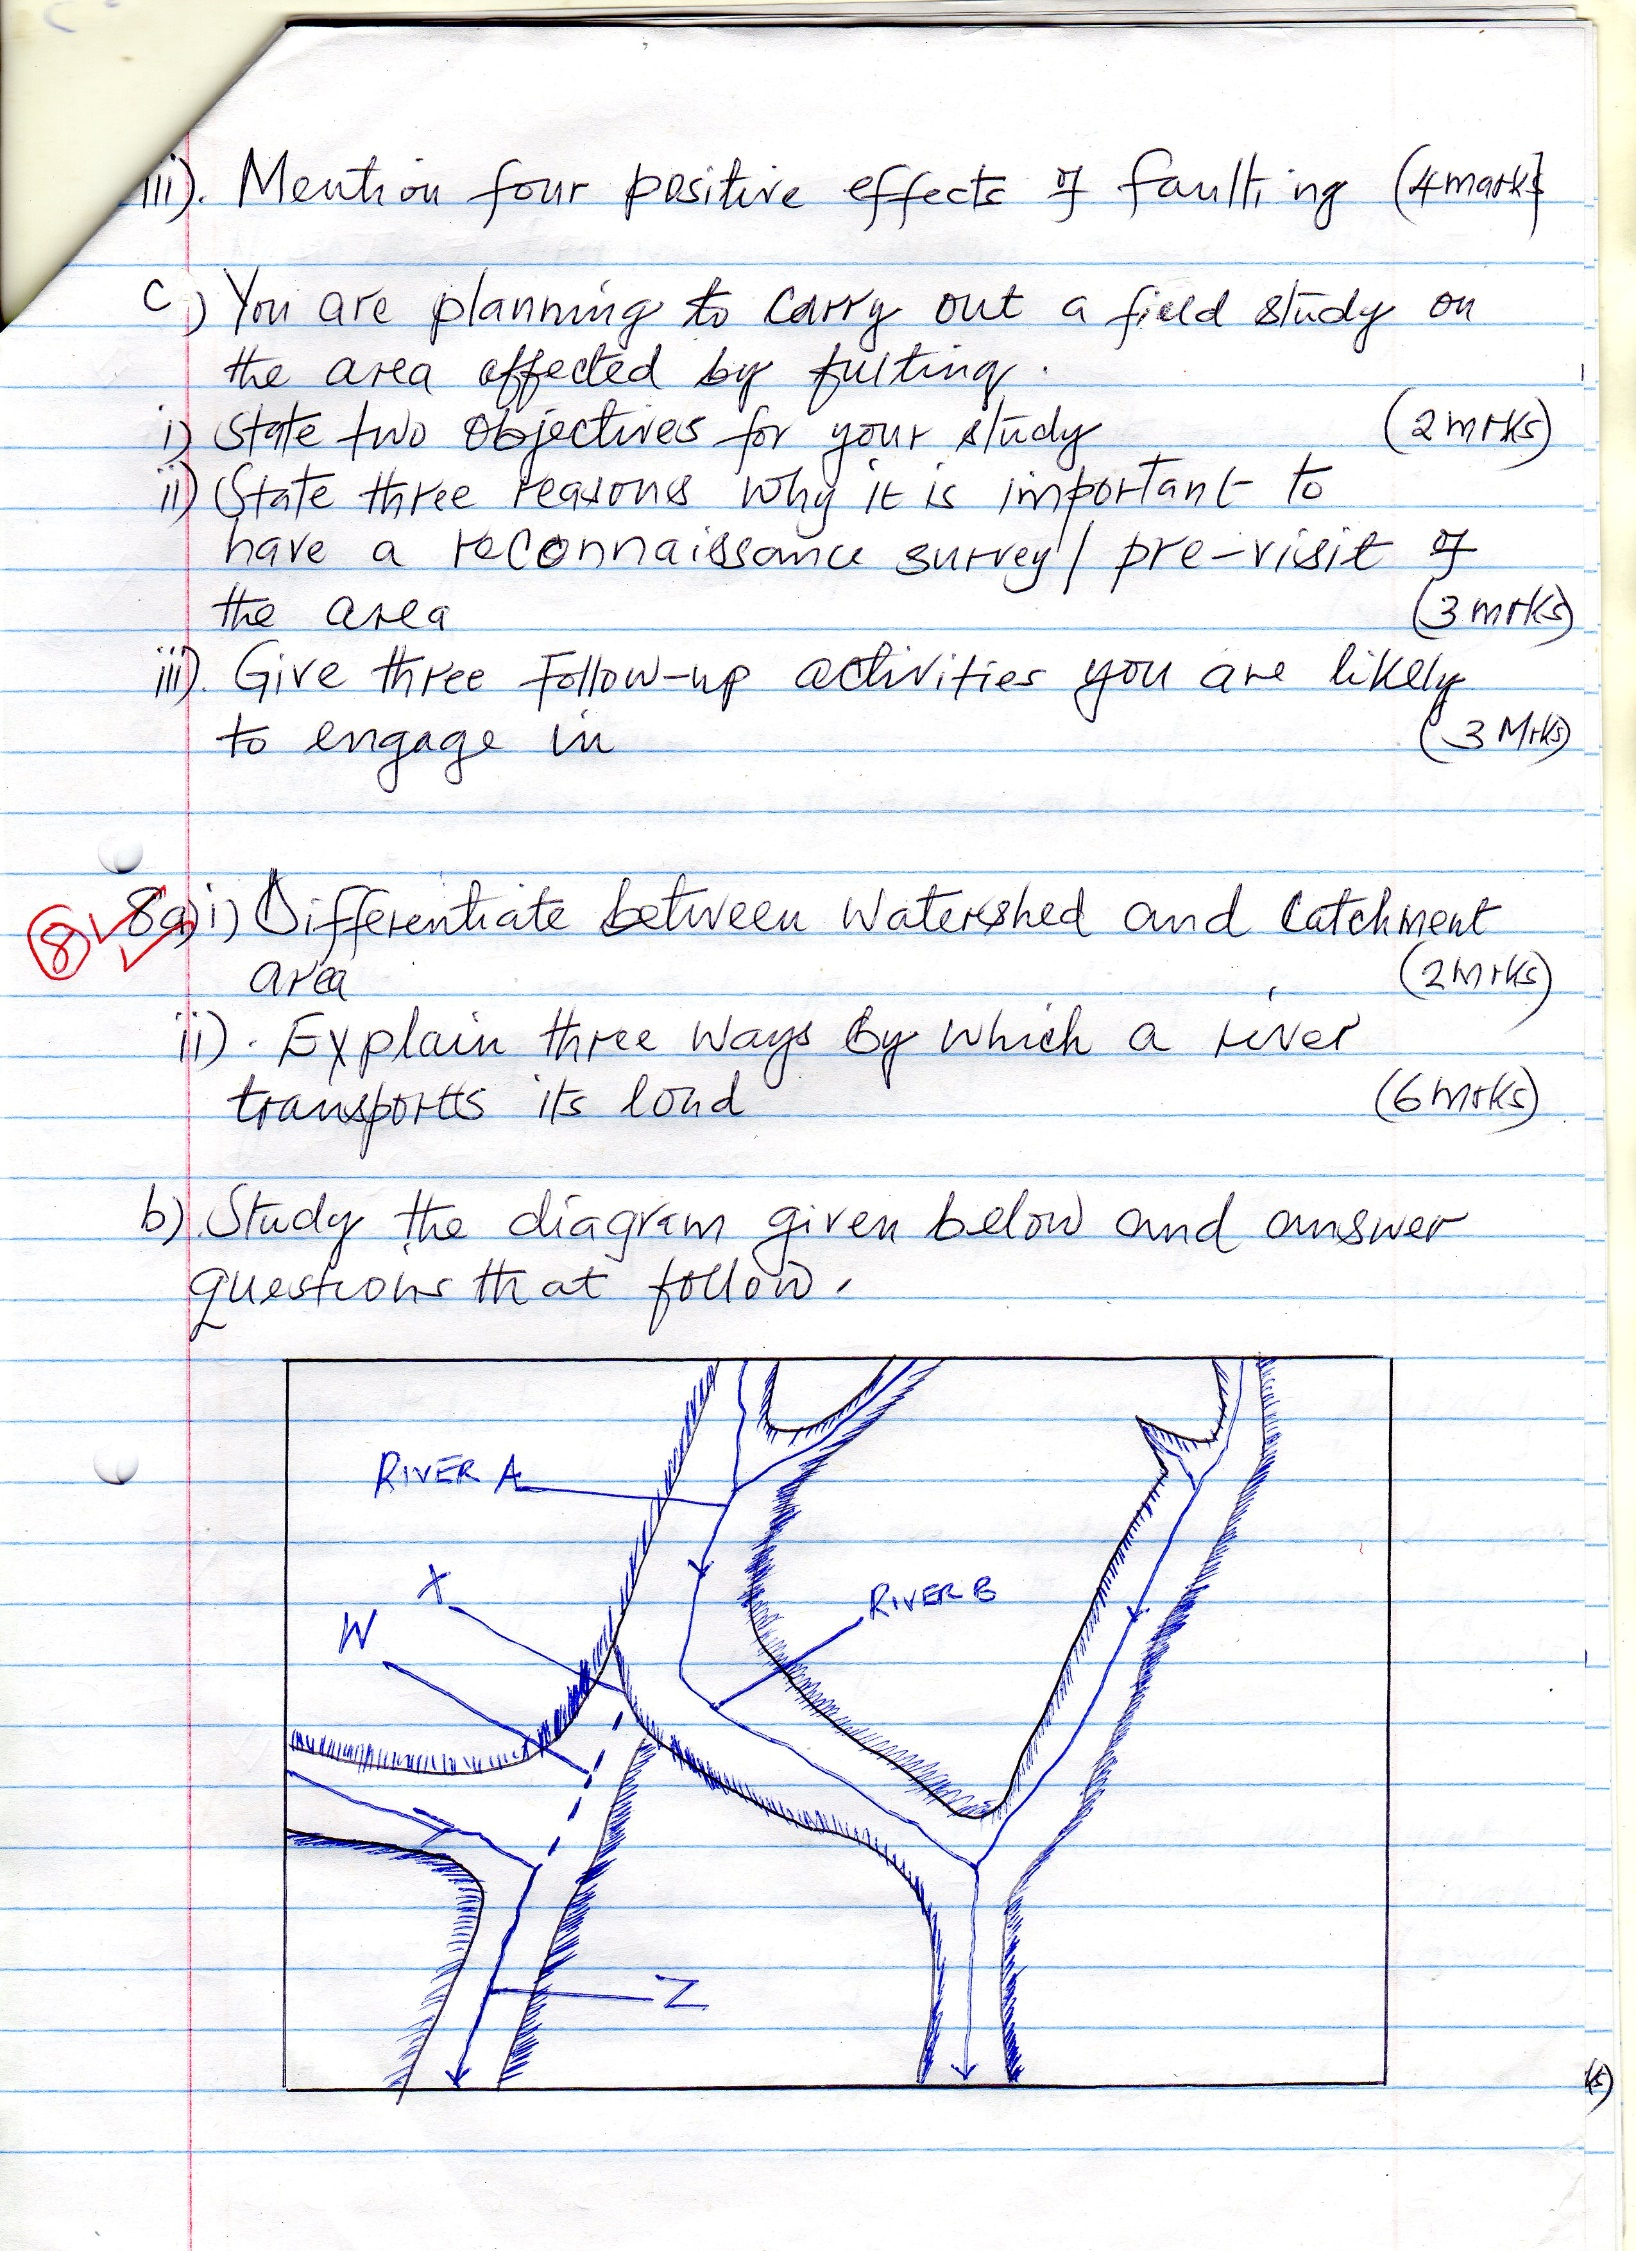 iii). Mention four positive effects of faulting (4marks]
c) You are planning to carry out a field study on
the area affected by fulting.
i) State two objectives for your study (2mrks)
ii) State three reasons why it is important to
have a reconnaissance survey / pre-visit of
the area (3mrks)
iii). Give three Follow-up activities you are likely
to engage in (3 Mrks)
8 8a)i) Differentiate between Watershed and Catchment
area (2mrks)
ii). Explain three ways by which a river
transports its load (6mrks)
b) Study the diagram given below and answer
questions that follow.
RIVER A
X
RIVER B
W
Z
ks)